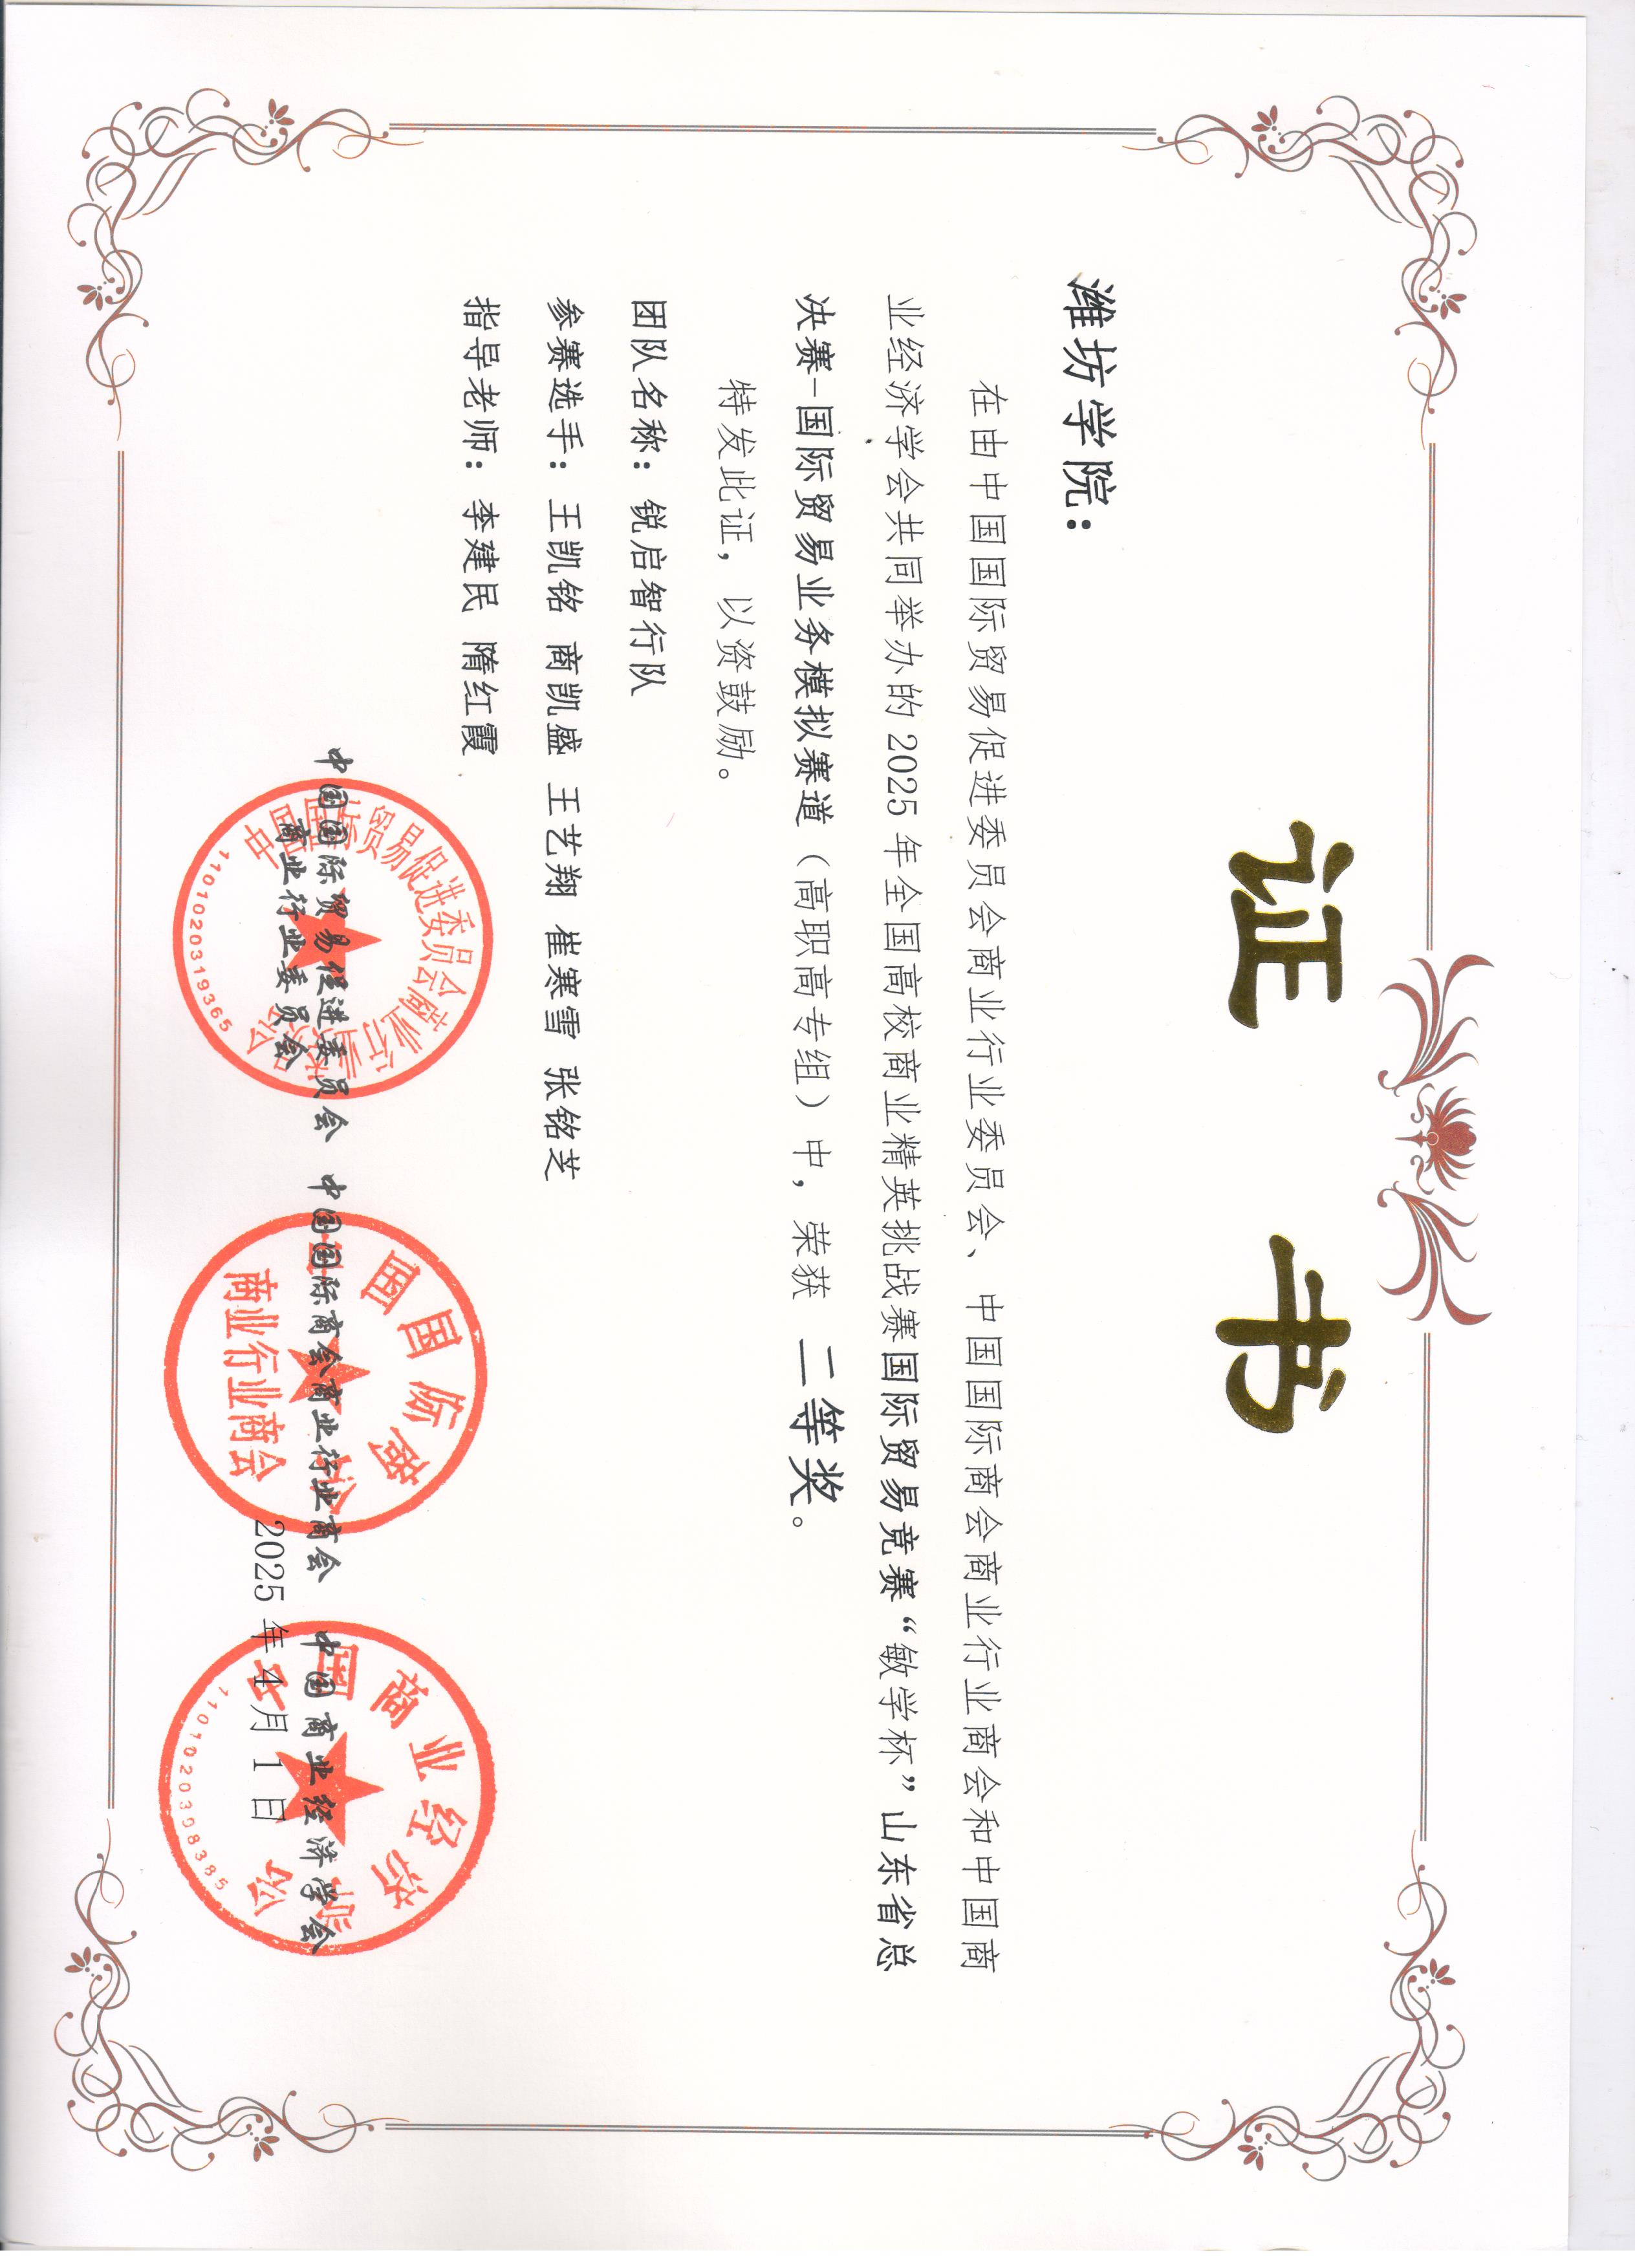 证 书
潍坊学院：
在由中国国际贸易促进委员会商业行业委员会、中国国际商会商业行业商会和中国商
业经济学会共同举办的2025年全国高校商业精英挑战赛国际贸易竞赛“敏学杯”山东省总
决赛-国际贸易业务模拟赛道（高职高专组）中，荣获 二等奖。
特发此证，以资鼓励。
团队名称：锐启智行队
参赛选手：王凯铭 商凯盛 王艺翔 崔寒雪 张铭芝
指导老师：李建民 隋红霞
中国国际贸易促进委员会 中国国际商会商业行业商会 中国商业经济学会
商业行业委员会
2025年4月1日
中国国际贸易促进委员会商业行业委员会
1101020319365
中国国际商会
商业行业商会
中国商业经济学会
1101020308385